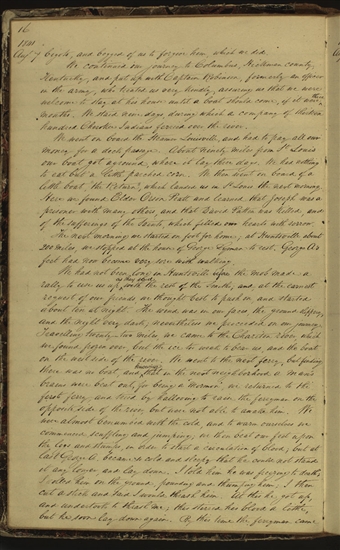 16
1841
Aug. 7 Cycle, and begged of us to forgive him, which we did.
We continued our journey to Columbus, Hickman county,
Kentucky, and put up with Captain Robinson, formerly an officer
in the army, who treated us very kindly, assuring us that we were
welcome to stay at his house until a boat should come, if it were three
months. We staid nine days during which a company of thirteen
hundred Cherokee Indians ferried over the river.
We went on board the Steamer Louisville, and had to pay all our
money for a deck passage. About ninety miles from St Louis
our boat got aground, where it lay three days. We had nothing
to eat but a little parched corn. We then went on board of a
little boat, the Return, which landed us in St Louis the next morning.
Here we found Elder Orson Pratt and learned that Joseph was a
prisoner with many others, and that David Patten was killed, and
of the sufferings of the Saints, which filled our hearts with sorrow.
The next morning we started on foot for home; at Huntsville about
200 miles, we stopped at the house of George Lyman to rest. George A's
feet had now become very sore with walking.
We had not been long in Huntsville before the mob made a
rally to use us up as they said, with the rest of the Smiths; and, at the earnest
request of our friends we thought best to push on, and started
about ten at night. The wind was in our faces, the ground slippery,
and the night very dark; nevertheless we proceeded on our journey.
Travelling twenty-two miles we came to the Chariton river, which
we found frozen over but the ice too weak to bear us, and the boat
on the west side of the river. We went to the next ferry, but finding
there was no boat, and knowing that in the next neighborhood a man's
brains were beat out, for being a "Mormon" we returned to the
first ferry, and tried by hallooing to raise the ferryman on the
opposite side of the river but were not able to awake him. We
were almost benumbed with the cold, and to warm ourselves we
commenced scuffling and jumping; we then beat our feet upon
the logs and stumps, in order to start a circulation of blood; but at
last George A. became so cold and sleepy that he could not stand
it any longer and lay down. I told him he was freezing to death;
I rolled him on the ground, pounding and thumping him; I then
cut a stick and said I would thrash him. At this he got up,
and undertook to thrash me; this stirred his blood a little,
but he soon lay down again. By this time the ferryman came